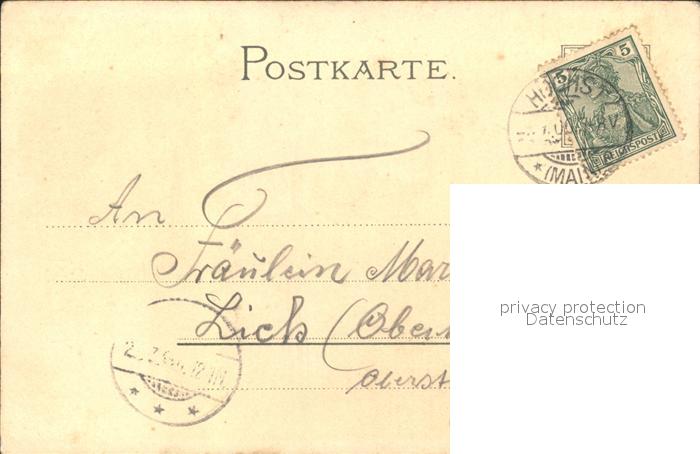 POSTKARTE.
5 5
REICHSPOST
(MAI
An
Fräulein Mar
Lich (Ober
Oberst
privacy protection
Datenschutz